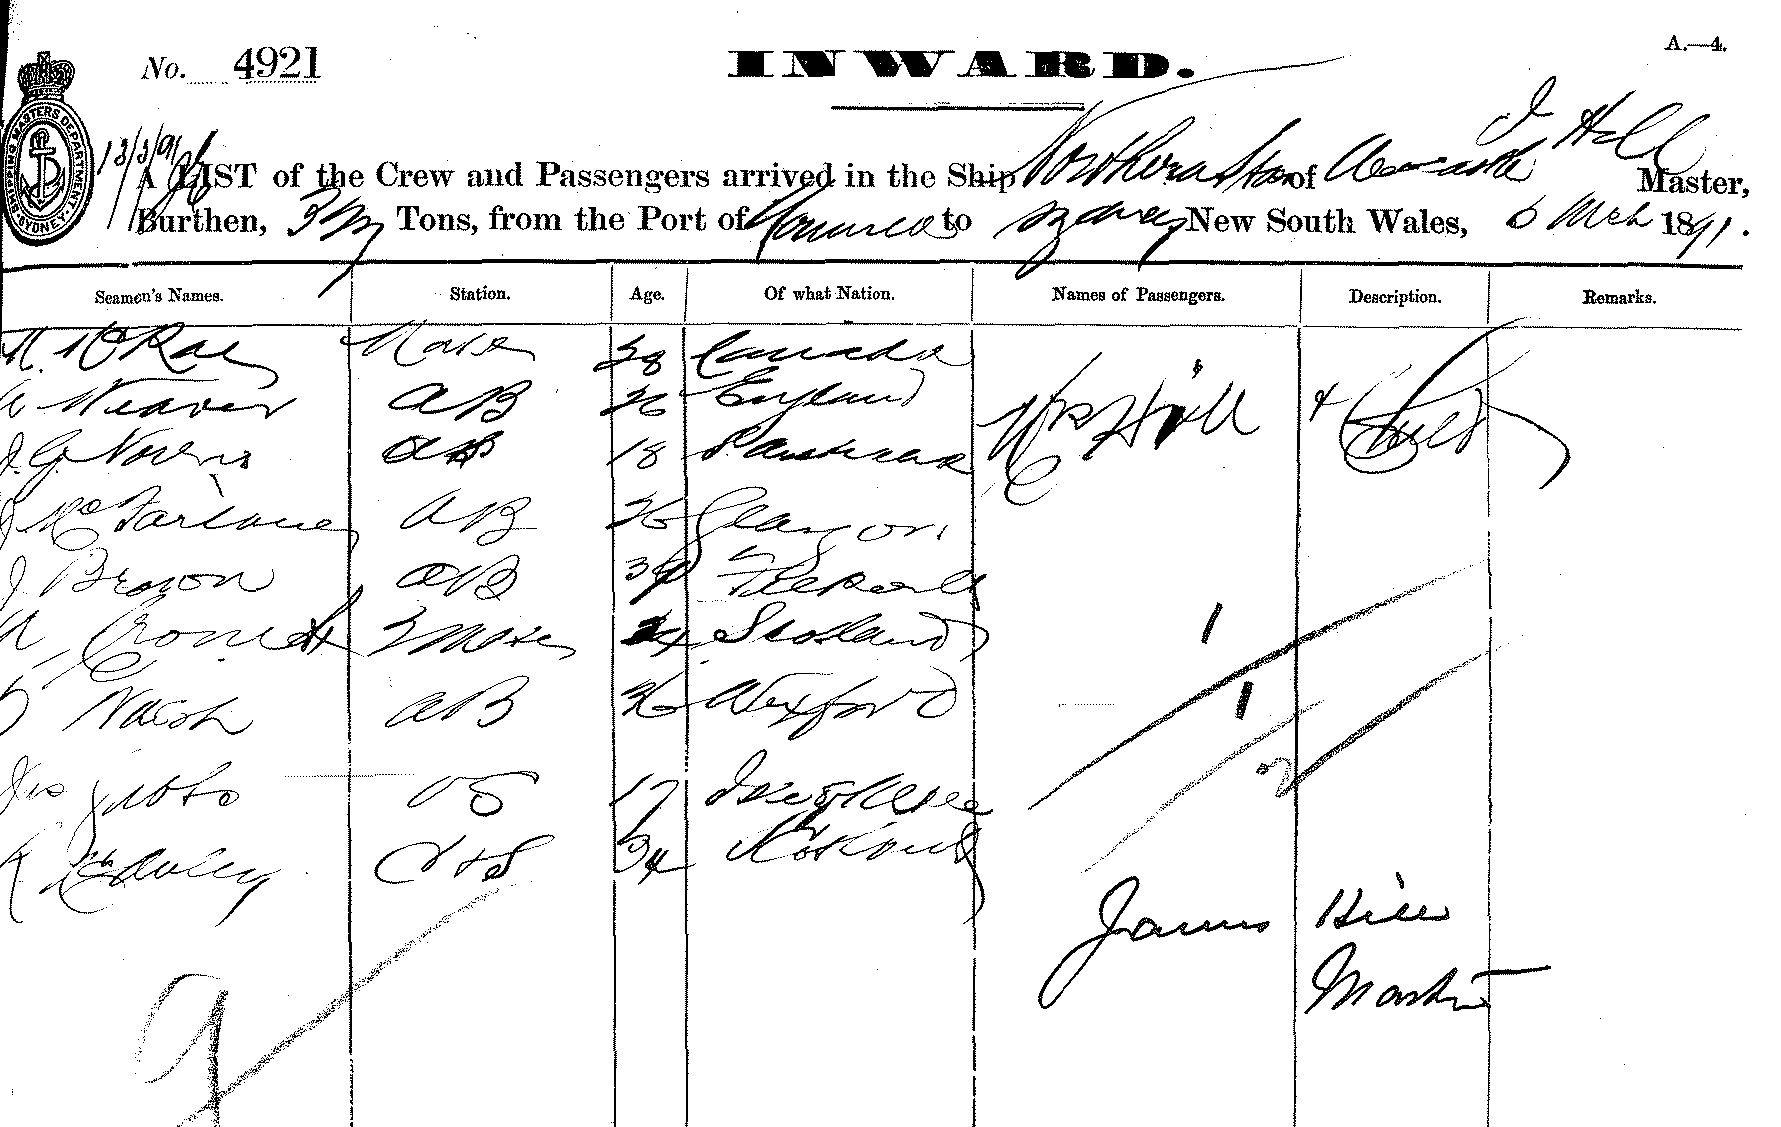 A.—4.
No. 4921
INWARD.
SHIPPING MASTERS DEPARTMENT SYDNEY
13/3/91
J Hill
A LIST of the Crew and Passengers arrived in the Ship Northern Star of Newcastle Master,
Burthen, Tons, from the Port of to Sydney New South Wales, 6 Mch 1891.
Seamen's Names. Station. Age. Of what Nation. Names of Passengers. Description. Remarks.
McRae Mate 28 Canada
Weaver AB 26 England
J. G. AB 18
Mrs Hill & Child
J McFarlane AB 26 Glasgow
J Brown AB
2 Mate 24 Scotland
Walsh AB 26 Wexford
Jas Gibbs OS 17
McAuley C & S 34
1
1
2
James Hill
Master
9